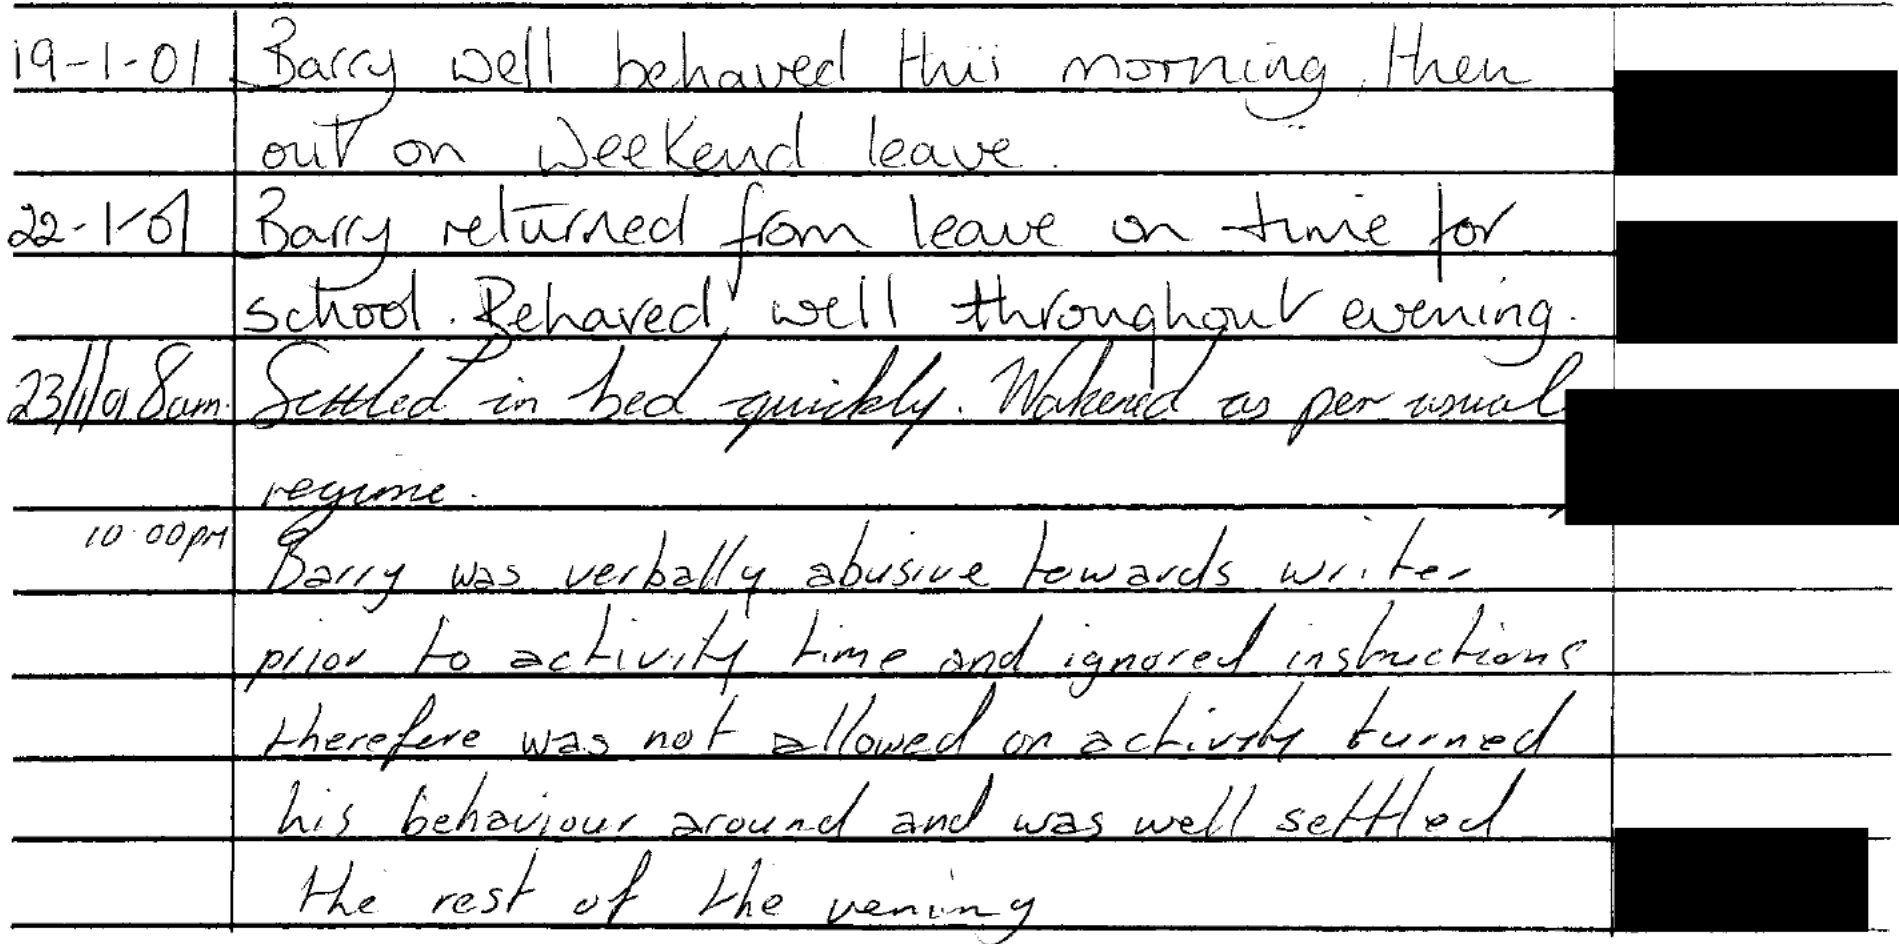 19-1-01 Barry well behaved this morning, then
out on weekend leave.
22-1-01 Barry returned from leave on time for
school. Behaved well throughout evening.
23/1/01 8am. Settled in bed quickly. Wakened as per usual
regime.
10.00pm Barry was verbally abusive towards writer
prior to activity time and ignored instructions
therefore was not allowed on activity turned
his behaviour around and was well settled
the rest of the vening